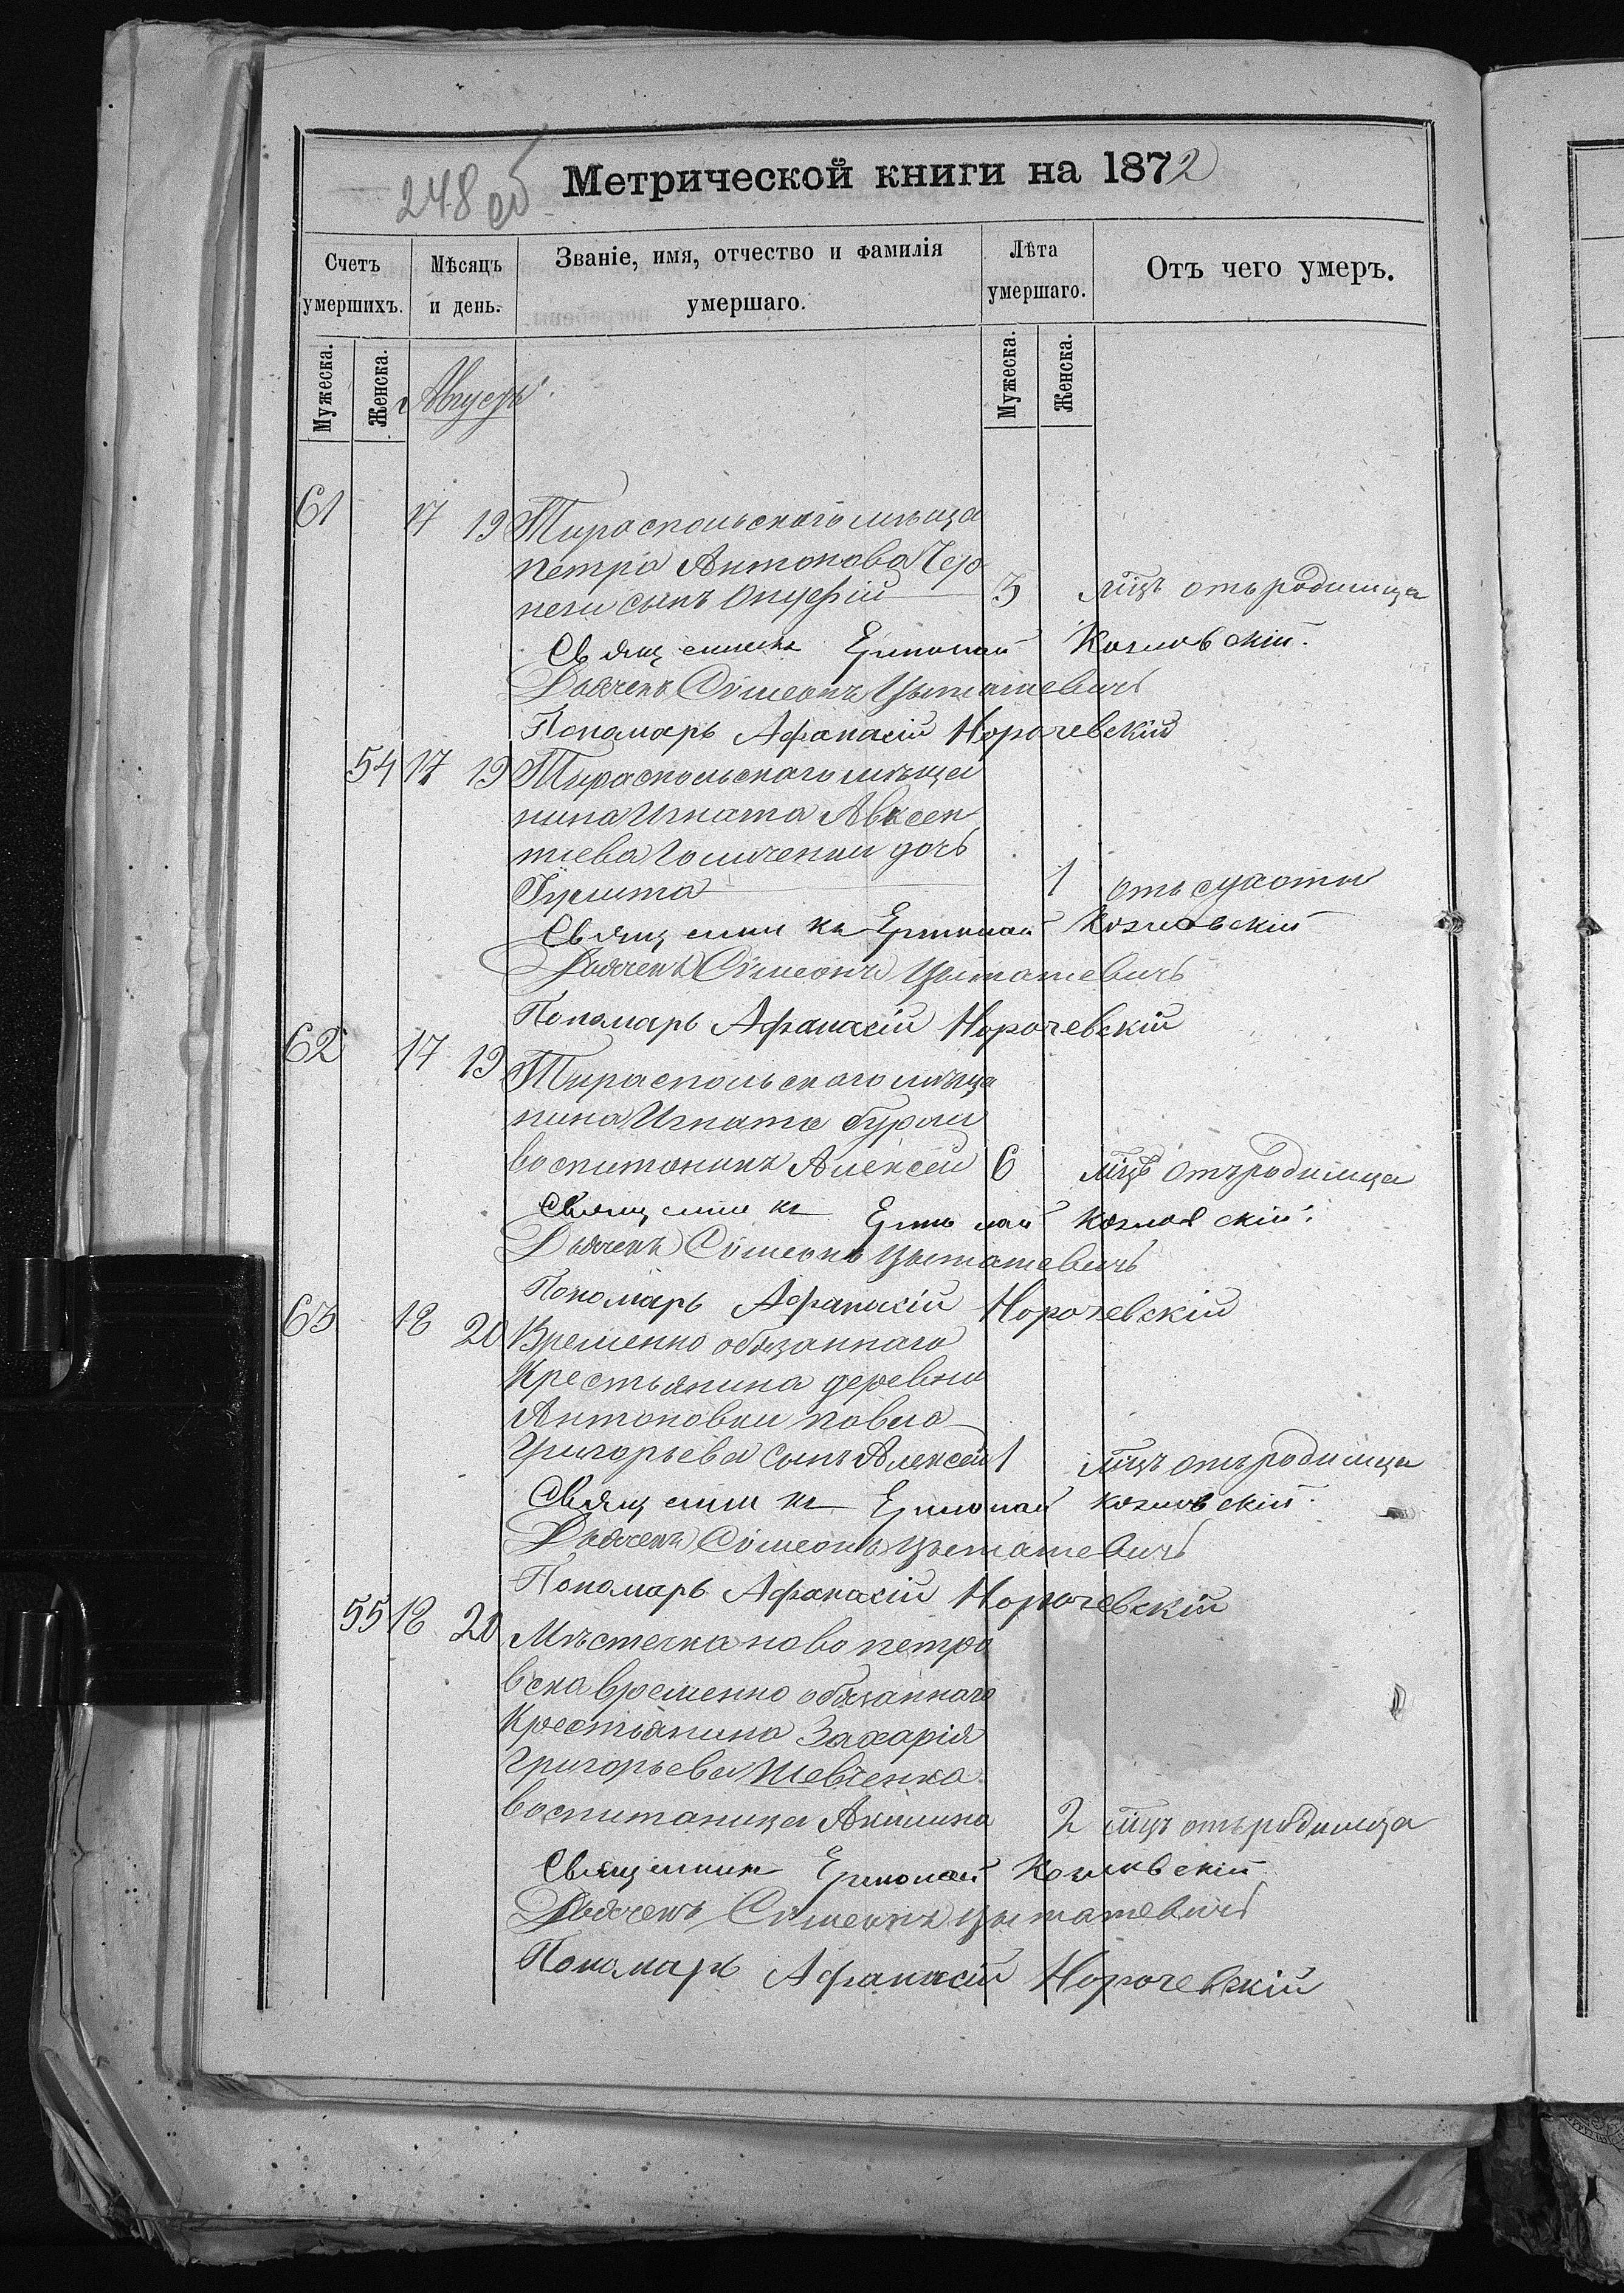 248 об
Метрической книги на 1872
Счетъ умершихъ.
Мѣсяцъ и день.
Званіе, имя, отчество и фамилія умершаго.
Лѣта умершаго.
Отъ чего умеръ.
Мужеска.
Женска.
Августъ
Мужеска.
Женска.
61 17 19 Тираспольскаго мѣща
Петра Антонова Чер
неги сынъ Онуфрій 3 мцъ отъ родимца
Священникъ Ермолай Козловскій.
Дьячекъ Сѵмеонъ
Пономарь Афанасій
54 17 19 Тираспольскаго мѣща
нина Игната Авксен
тиева дочь
Іулита 1 отъ сухоты
Священникъ Ермолай Козловскій
Дьячекъ Сѵмеонъ
Пономарь Афанасій
62 17 19 Тираспольскаго мѣща
нина Игната
воспитаникъ Алексей 6 мцъ отъ родимца
Священникъ Ермолай Козловскій.
Дьячекъ Сѵмеонъ
Пономарь Афанасій
63 18 20 Временно обязаннаго
Крестьянина деревни
Антоновки Павла
Григорьева сынъ Алексей 1 мцъ отъ родимца
Священникъ Ермолай Козловскій.
Дьячекъ Сѵмеонъ
Пономарь Афанасій
55 18 20 Мѣстечка ново петро
вска временно обязаннаго
Крестьянина Захарія
Григорьева Шевченка
воспитаница Акилина 2 мцъ отъ родимца
Священникъ Ермолай Козловскій
Дьячекъ Сѵмеонъ
Пономарь Афанасій